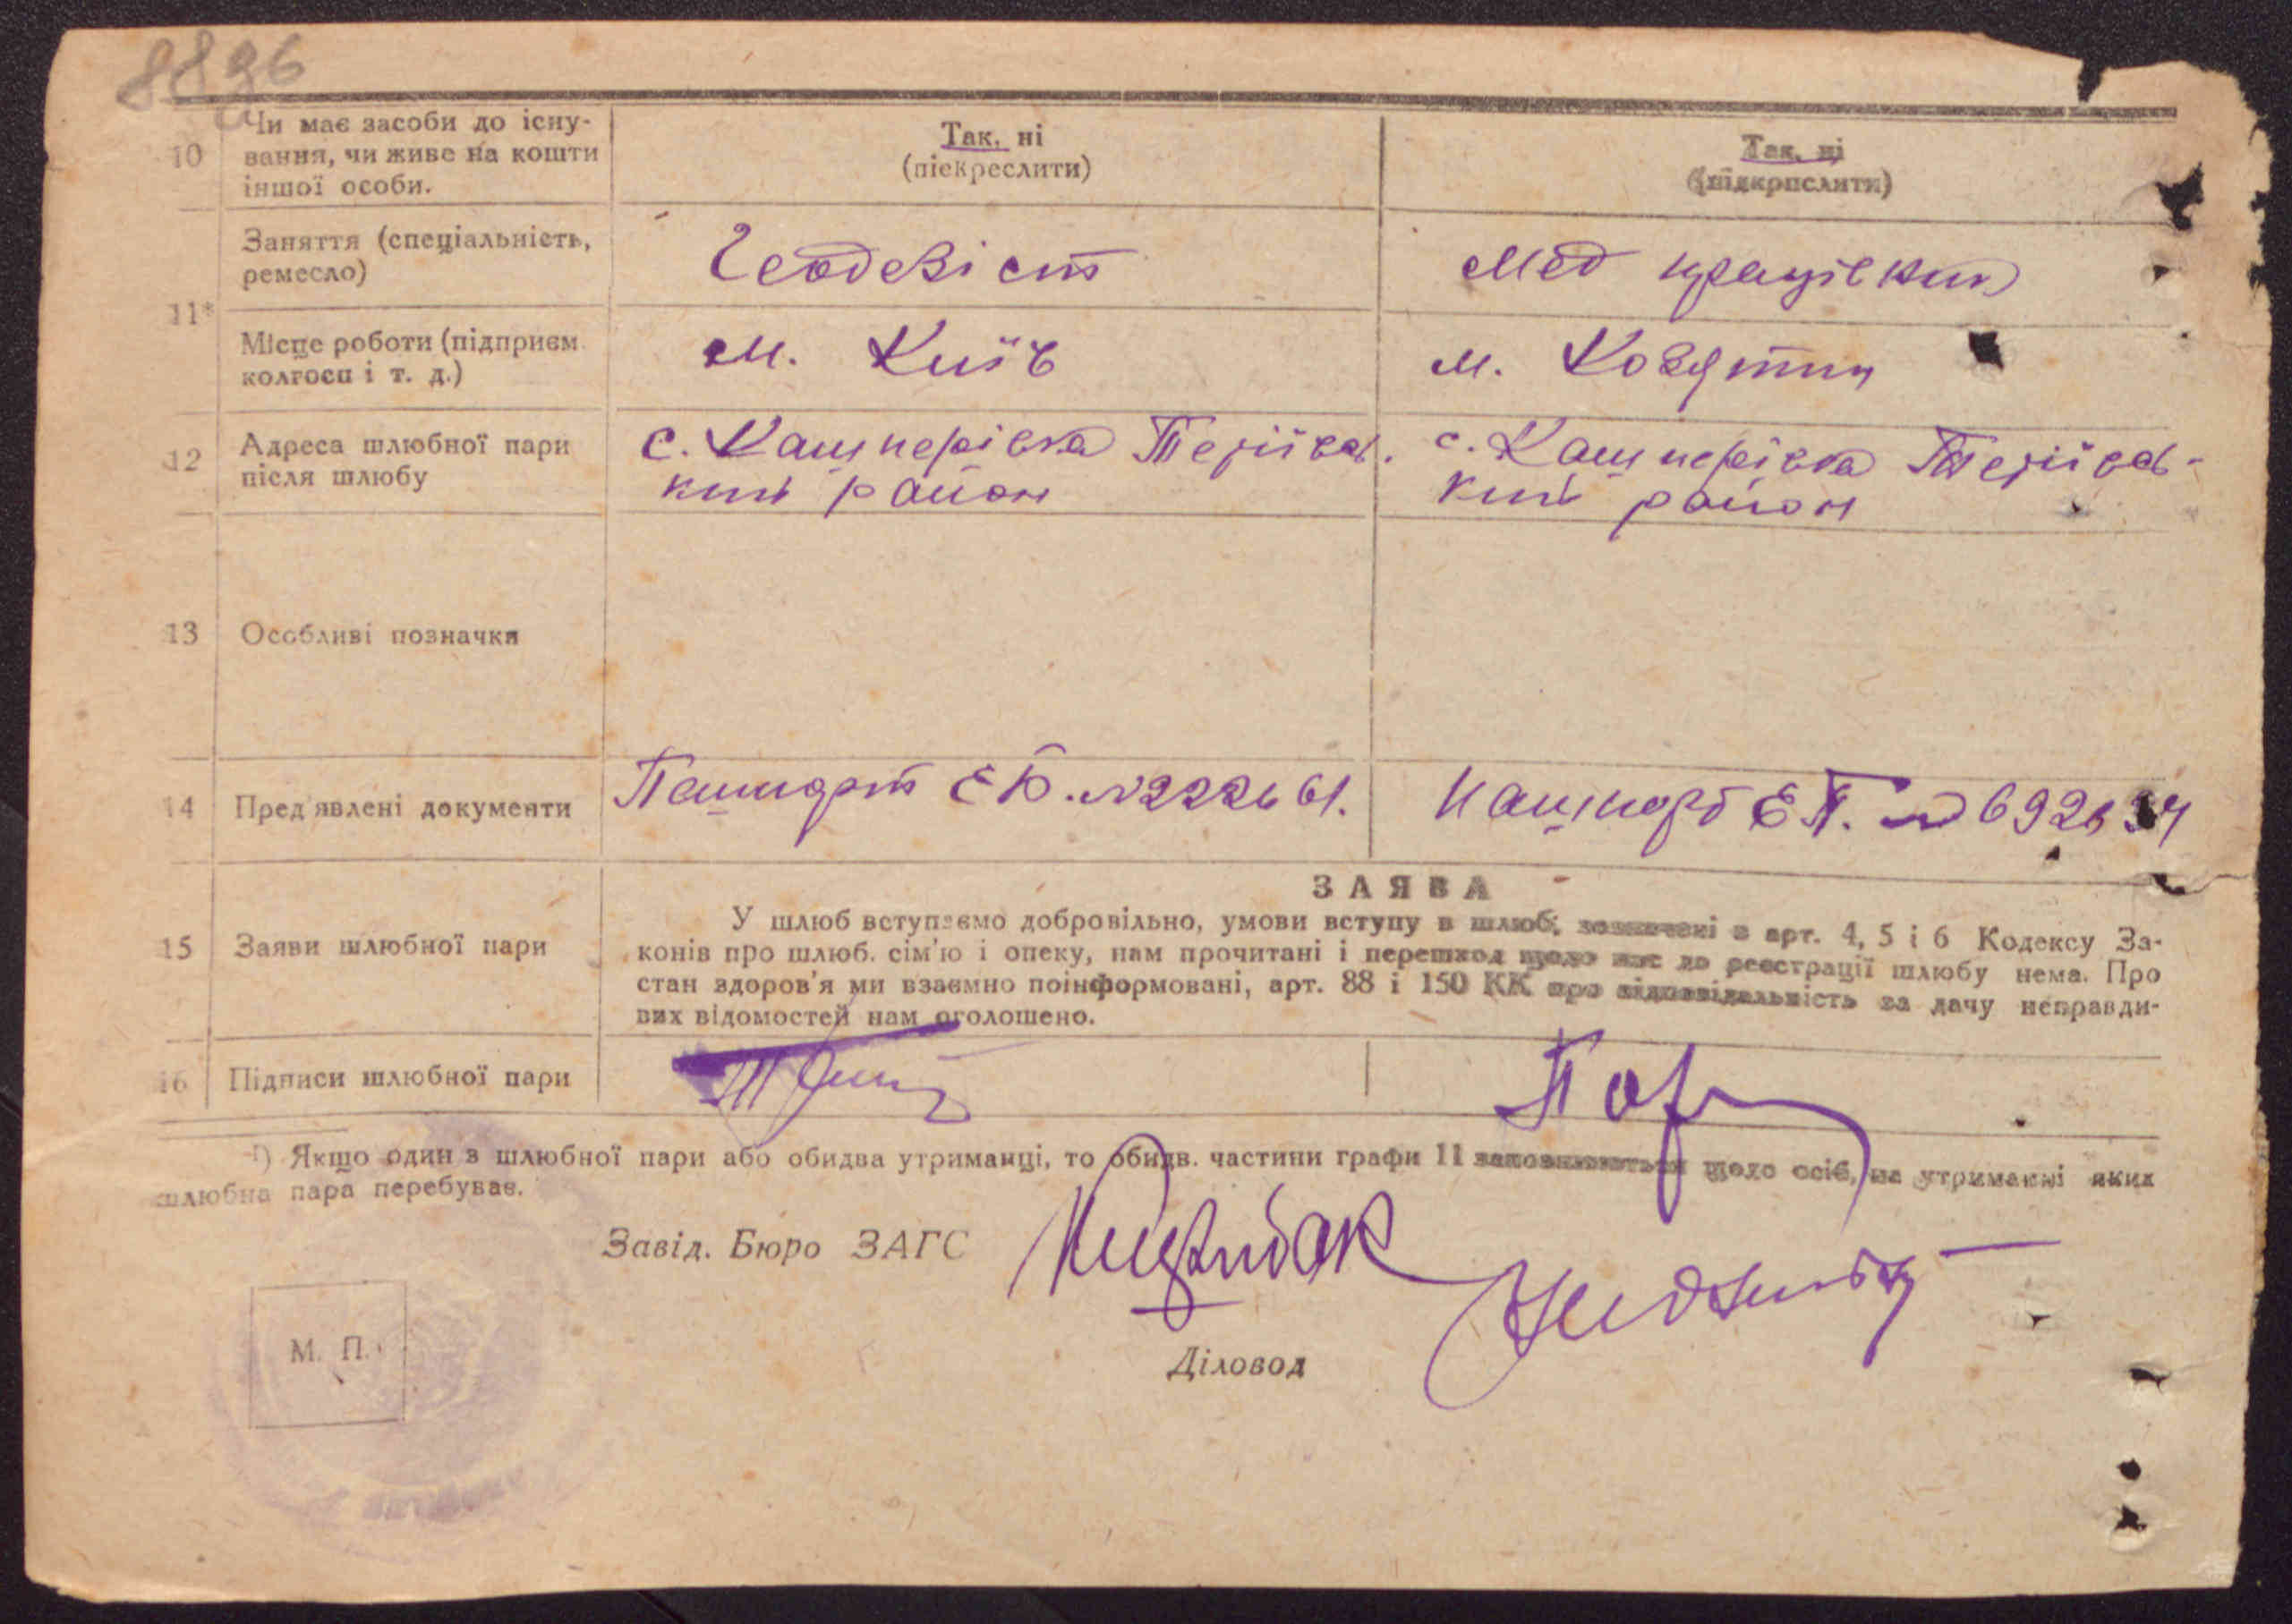 8896
10 Чи має засоби до існу-
вання, чи живе на кошти
іншої особи.
Так, ні
(піекреслити)
Так, ні
(підкрпслити)
11*
Заняття (спеціальність,
ремесло)
Геодезіст
Мед працівник
Місце роботи (підприєм.
колгосп і т. д.)
м. Київ
м. Козятин
12 Адреса шлюбної пари
після шлюбу
с. Кашперівка Тетіївсь-
кий район
с. Кашперівка Тетіївсь-
кий район
13 Особливі позначки
14 Пред'явлені документи
Пашпорт
Пашпорт
15 Заяви шлюбної пари
ЗАЯВА
У шлюб вступаємо добровільно, умови вступу в шлюб, зазначені в арт. 4, 5 і 6 Кодексу За-
конів про шлюб. сім'ю і опеку, нам прочитані і перешкод щодо нас до реєстрації шлюбу нема. Про
стан здоров'я ми взаємно поінформовані, арт. 88 і 150 КК про відповідальність за дачу неправди-
вих відомостей нам оголошено.
16 Підписи шлюбної пари
¹) Якщо один з шлюбної пари або обидва утриманці, то обидв. частини графи 11 заповнюються щодо осіб, на утриманні яких
шлюбна пара перебуває.
Завід. Бюро ЗАГС
М. П.
Діловод